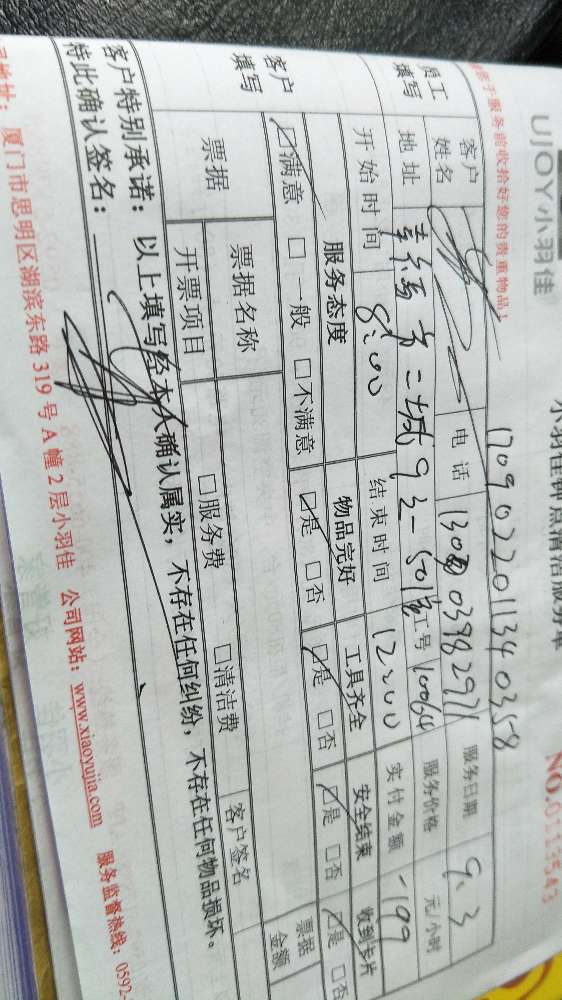 UJOY小羽佳
小羽佳钟点清洁服务单
NO.0113543
服务前收拾好您的贵重物品!
1709022011340358
员工填写
客户姓名 电话 服务日期 9.3
地址 92-501室 工号 10064 服务价格 元/小时
开始时间 8:00 结束时间 12:00 实付金额 -109
客户填写
服务态度 物品完好 工具齐全 安全结束 收到卡片
☑满意 □一般 □不满意 ☑是 □否 ☑是 □否 ☑是 □否 ☑是 □否
票据 票据名称 客户签名 票据金额
开票项目 □服务费 □清洁费
客户特别承诺:以上填写经本人确认属实,不存在任何纠纷,不存在任何物品损坏。
特此确认签名:
地址:厦门市思明区湖滨东路319号A幢2层小羽佳 公司网站:www.xiaoyujia.com 服务监督热线:0592-